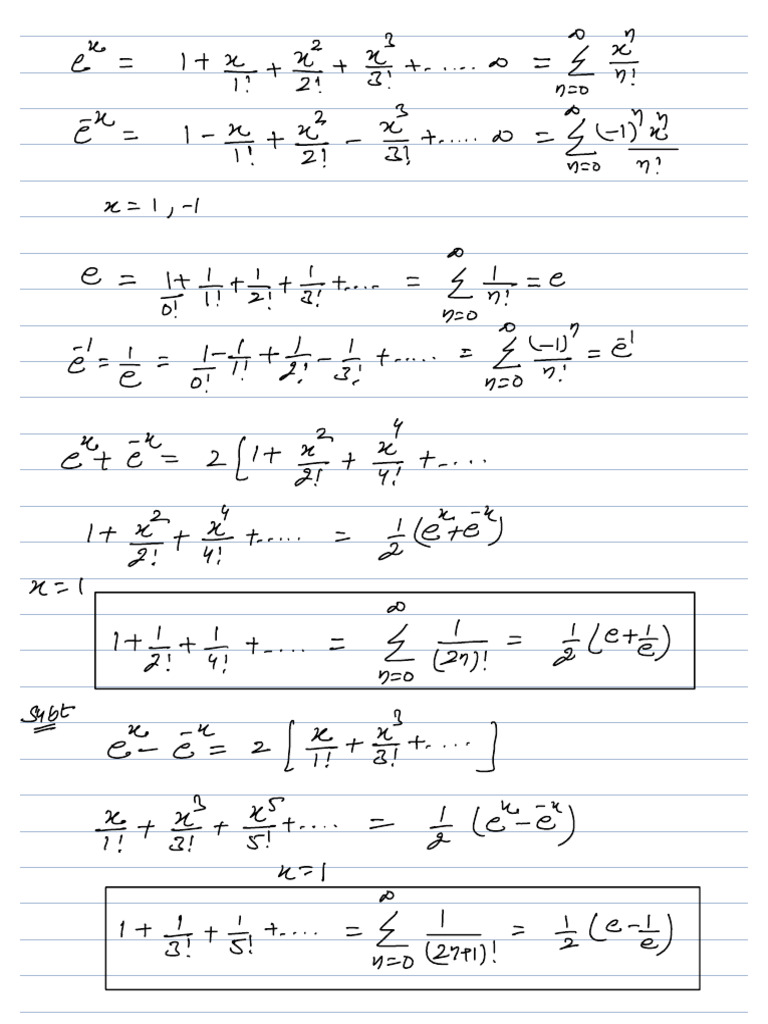 e^x = 1 + x/1! + x^2/2! + x^3/3! + ..... ∞ = ∑_{n=0}^{∞} x^n/n!
e^{-x} = 1 - x/1! + x^2/2! - x^3/3! + ..... ∞ = ∑_{n=0}^{∞} (-1)^n x^n/n!
x = 1, -1
e = 1/0! + 1/1! + 1/2! + 1/3! + .... = ∑_{n=0}^{∞} 1/n! = e
e^{-1} = 1/e = 1/0! - 1/1! + 1/2! - 1/3! + ..... = ∑_{n=0}^{∞} (-1)^n/n! = e^{-1}
e^x + e^{-x} = 2 [ 1 + x^2/2! + x^4/4! + ....
1 + x^2/2! + x^4/4! + ..... = 1/2 (e^x + e^{-x})
x = 1
1 + 1/2! + 1/4! + ..... = ∑_{n=0}^{∞} 1/(2n)! = 1/2 (e + 1/e)
Subt
e^x - e^{-x} = 2 [ x/1! + x^3/3! + .... ]
x/1! + x^3/3! + x^5/5! + .... = 1/2 (e^x - e^{-x})
x = 1
1 + 1/3! + 1/5! + .... = ∑_{n=0}^{∞} 1/(2n+1)! = 1/2 (e - 1/e)